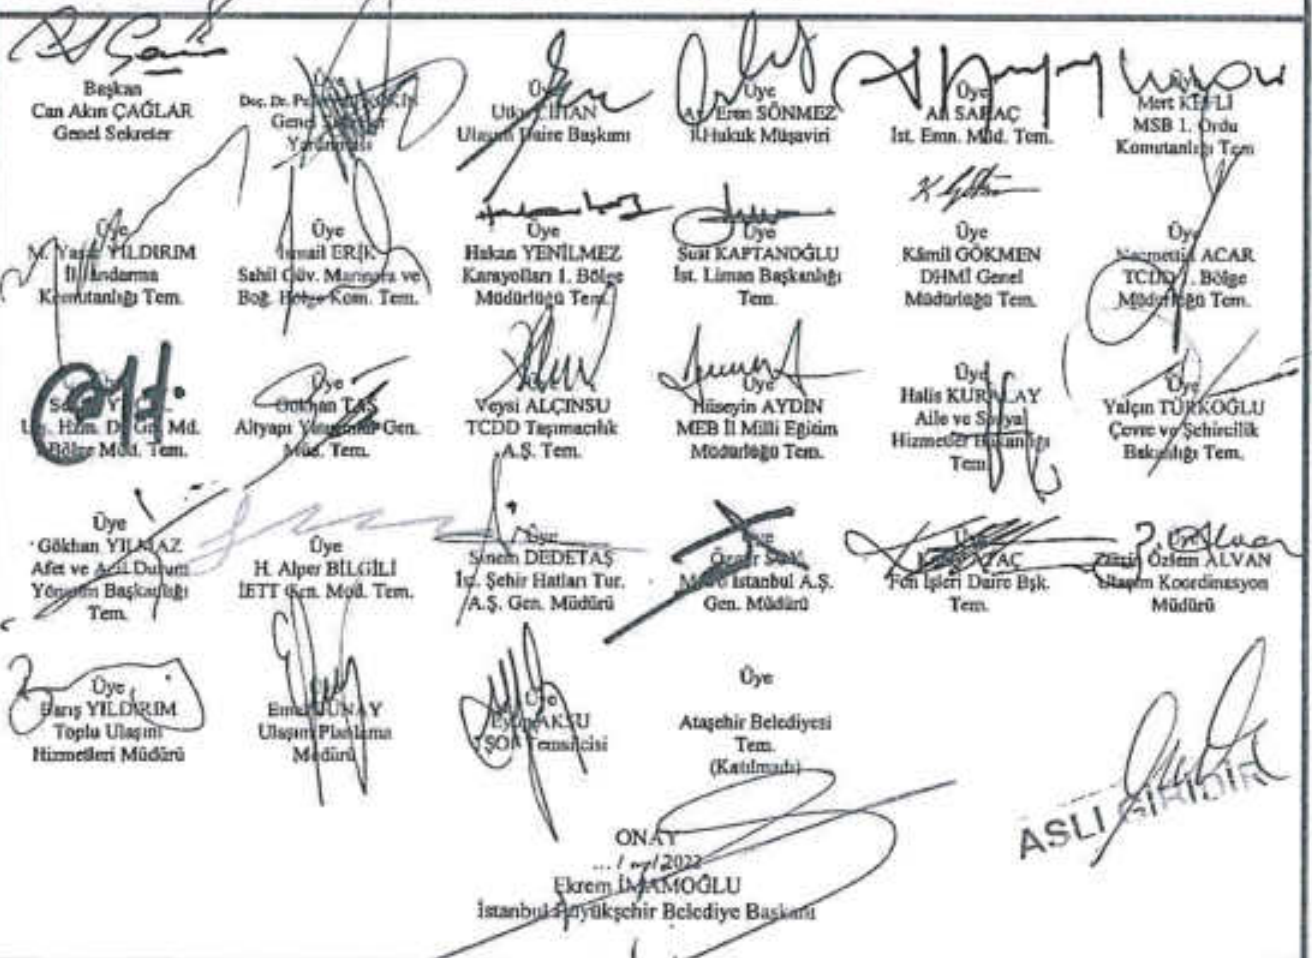 Başkan
Can Akın ÇAĞLAR
Genel Sekreter
Doç. Dr.
Genel
Yardımcısı
Üye
Ulaşım Daire Başkanı
Üye
Av. Eren SÖNMEZ
I.Hukuk Müşaviri
Üye
Ali SARAÇ
İst. Emn. Müd. Tem.
Mert
MSB 1. Ordu
Komutanlığı Tem
Üye
M. Yaşar YILDIRIM
İl Jandarma
Komutanlığı Tem.
Üye
İsmail ERİK
Sahil Güv. Marmara ve
Boğ. Bölge Kom. Tem.
Üye
Hakan YENİLMEZ
Karayolları 1. Bölge
Müdürlüğü Tem.
Üye
Suat KAPTANOĞLU
İst. Liman Başkanlığı
Tem.
Üye
Kâmil GÖKMEN
DHMİ Genel
Müdürlüğü Tem.
Üye
Necmettin ACAR
TCDD 1. Bölge
Müdürlüğü Tem.
Md.
Bölge Müd. Tem.
Üye
Gökhan TAŞ
Altyapı Yatırımları Gen.
Müd. Tem.
Veysi ALÇINSU
TCDD Taşımacılık
A.Ş. Tem.
Üye
Hüseyin AYDIN
MEB İl Milli Eğitim
Müdürlüğü Tem.
Üye
Halis KURALAY
Aile ve Sosyal
Hizmetler Bakanlığı
Tem.
Üye
Yalçın TÜRKOĞLU
Çevre ve Şehircilik
Bakanlığı Tem.
Üye
Gökhan YILMAZ
Afet ve Acil Durum
Yönetim Başkanlığı
Tem.
Üye
H. Alper BİLGİLİ
İETT Gen. Müd. Tem.
Üye
Sinem DEDETAŞ
İst. Şehir Hatları Tur.
A.Ş. Gen. Müdürü
Üye
Özgür
Metro İstanbul A.Ş.
Gen. Müdürü
Üye
Fen İşleri Daire Bşk.
Tem.
Özlem ALVAN
Ulaşım Koordinasyon
Müdürü
Üye
Barış YILDIRIM
Toplu Ulaşım
Hizmetleri Müdürü
Ulaşım Planlama
Müdürü
Üye
AKSU
Temsilcisi
Üye
Ataşehir Belediyesi
Tem.
(Katılmadı)
ONAY
... / ... /2022
Ekrem İMAMOĞLU
İstanbul Büyükşehir Belediye Başkanı
ASLI GİBİDİR